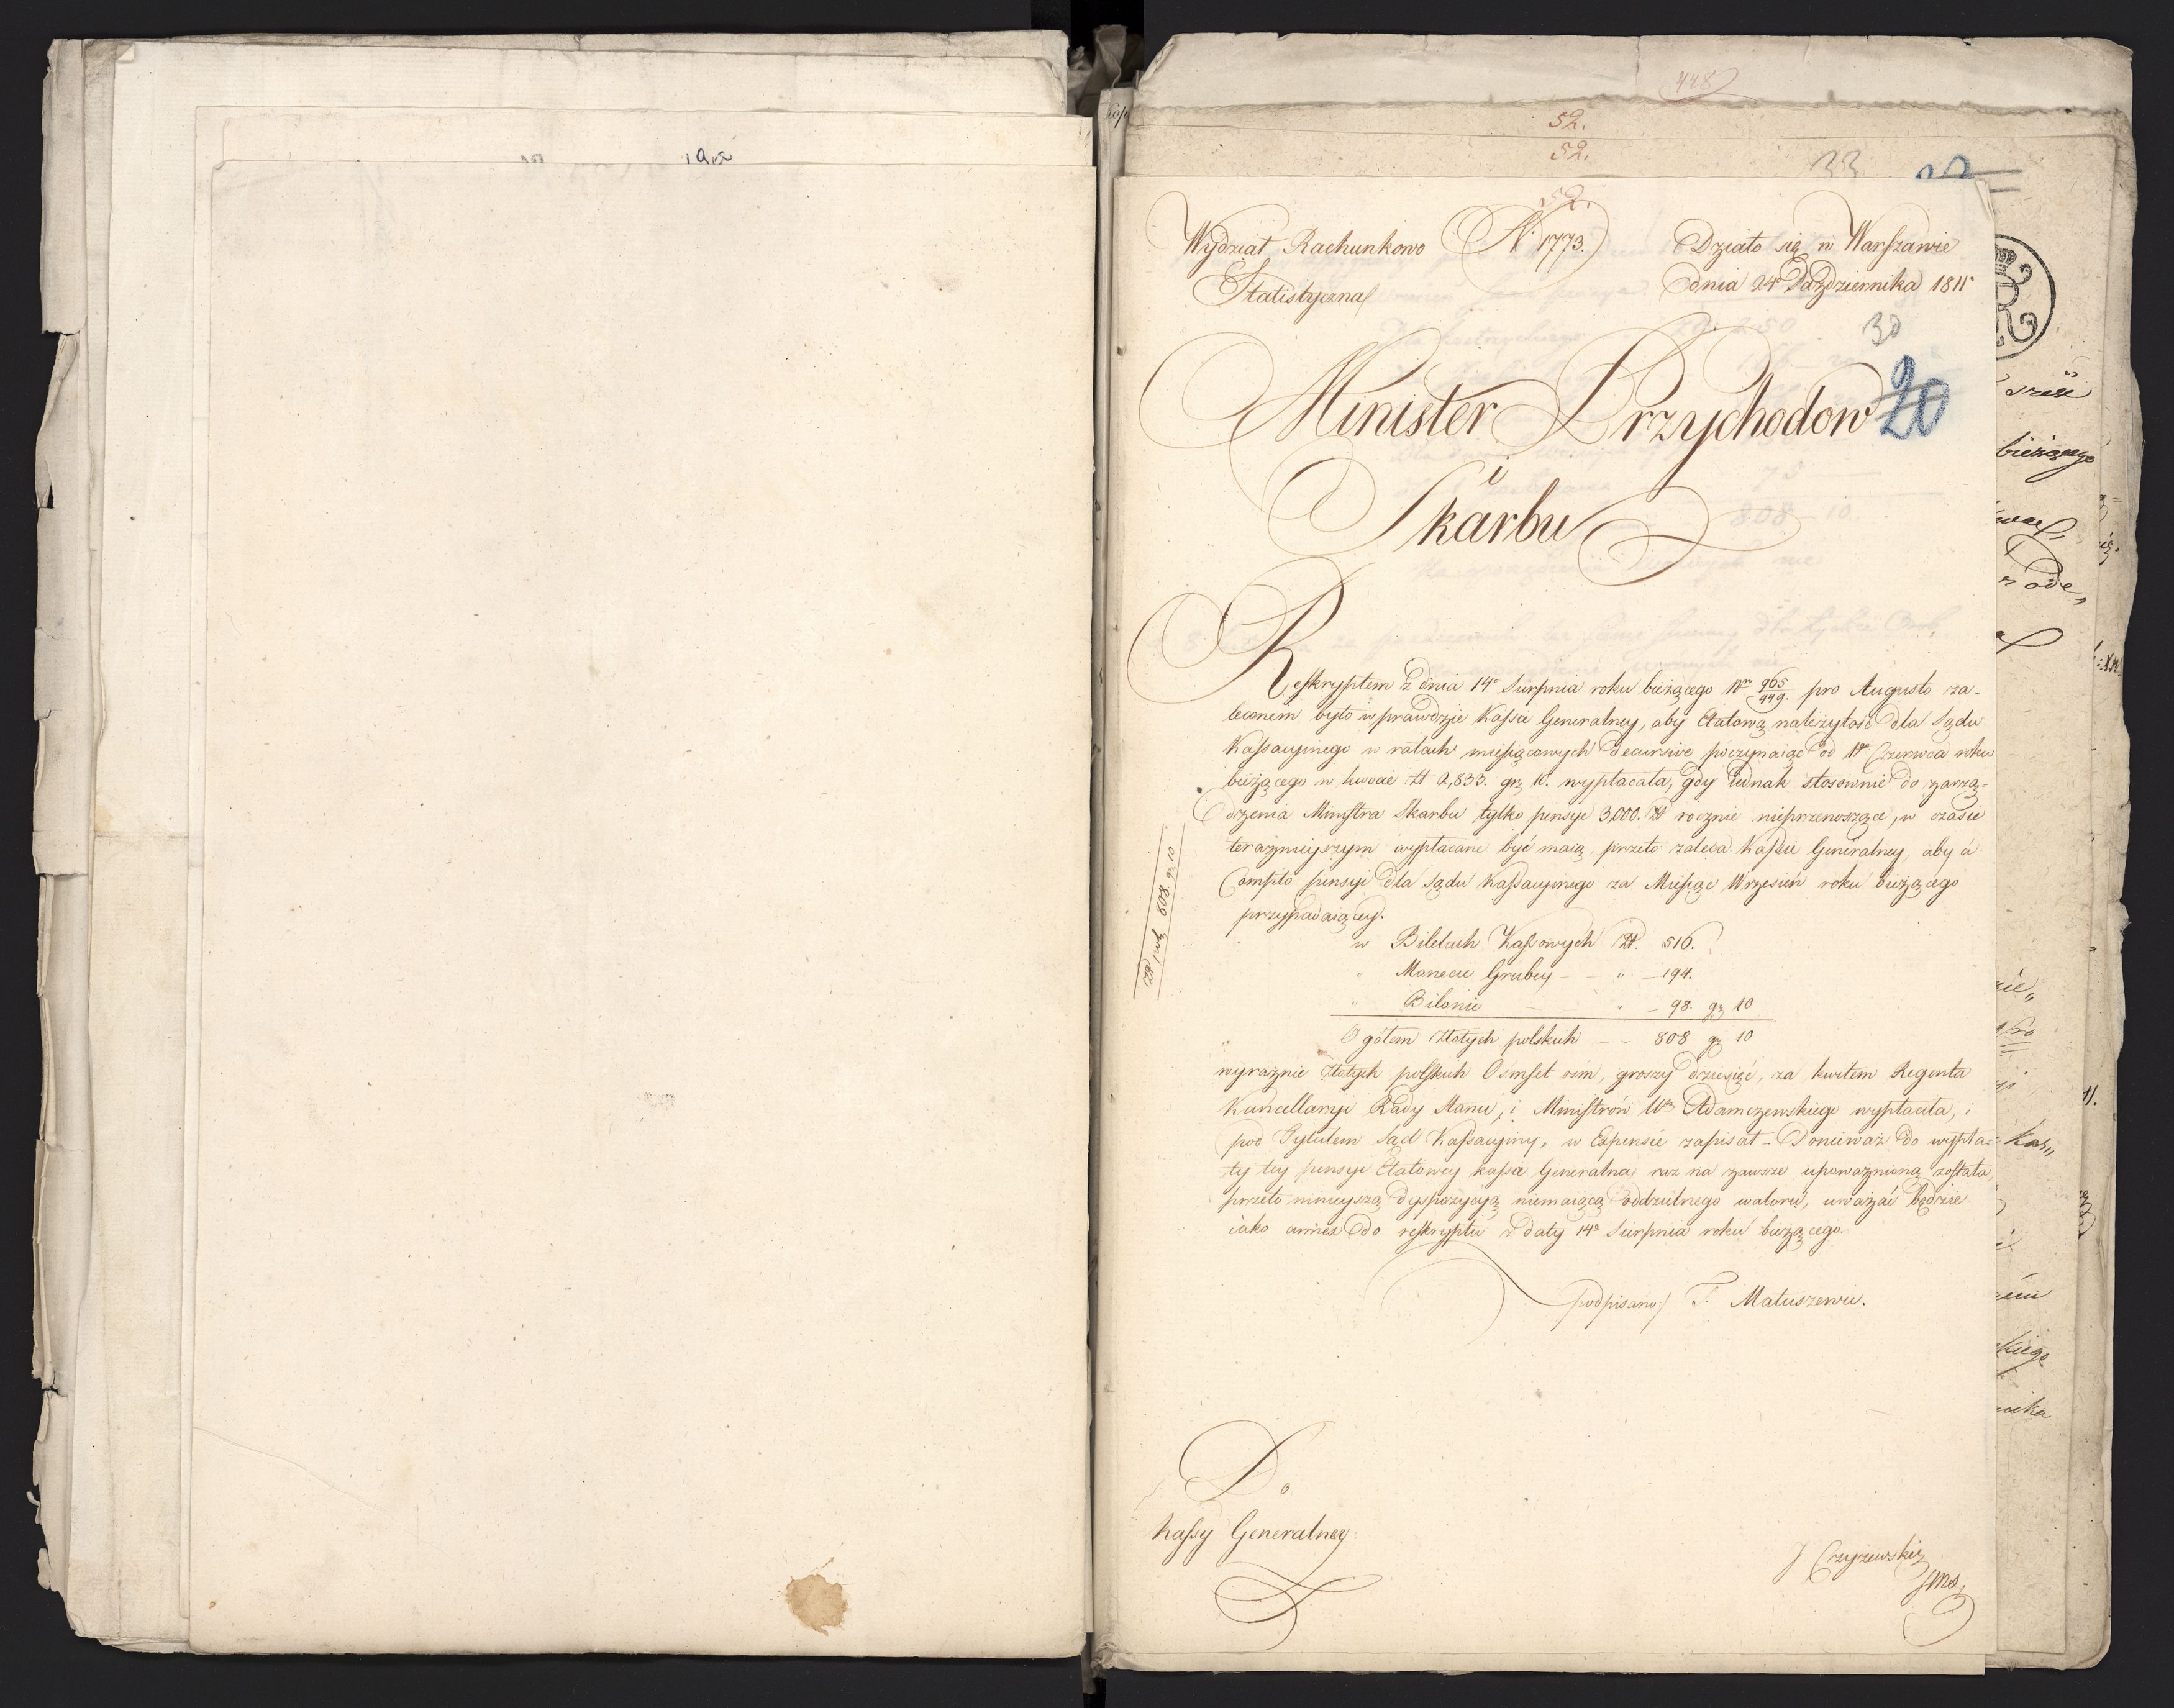 52.
52.
52.
33
Wydział Rachunkowo
Statistyczna/
N. 1773.
Działo się w Warszawie
dnia 24 Października 1811
30
20
Minister Przychodow
i
Skarbu
Reskryptem z dnia 14º Sierpnia roku bieżącego Nro 965/449. pro Augusto za-
leconem było wprawdzie Kassie Generalney, aby Etatową należytość dla Sądu
Kassacyinego w ratach miesiącowych decursive poczynaiąc od 1go Czerwca roku
bieżącego w kwocie zł 2,833. gr 10. wypłacała, gdy iednak stosownie do zarzą-
dzenia Ministra Skarbu tylko pensye 3,000. Zł rocznie nieprzenoszące, w czasie
teraznieyszym wypłacane być maią, przeto zaleca Kassie Generalney, aby a
Compto pensyi dla Sądu Kassacyinego za Miesiąc Wrzesień roku bieżącego
przypadaiącey.
w Biletach Kassowych Zł. 516.
" Monecie Grubey - " - 194.
" Bilonie - " - 98. gr 10
Ogółem Złotych polskich - - 808 gr 10
wyraznie Złotych polskich Osmset ośm, groszy dziesięć, za kwitem Regenta
Kancellaryi Rady Stanu, i Ministrów Wo Adamczewskiego wypłaciła, i
pod Tytułem Sąd Kassacyiny, w Expensie zapisał - Ponieważ do wypła-
ty tey pensyi Etatowey kassa Generalna raz na zawsze upoważnioną została,
przeto ninieyszą dyspozycyą niemaiącą oddzielnego waloru, uważać będzie
iako annex do reskryptu z daty 14º Sierpnia roku bieżącego.
/podpisano:/ T. Matuszewic.
Do
Kassy Generalney
J Czyżewski